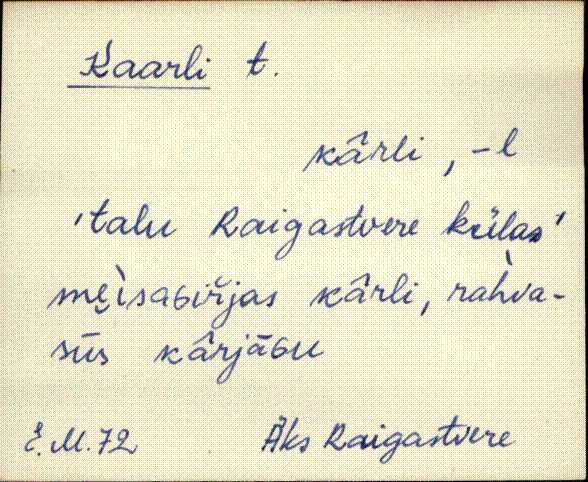 Kaarli t.
kârli, -l
'talu Raigastvere külas'
mę̀isaɢiřjas kârli, rah̀va-
sūs kârjāɢu
E.M.72 Äks Raigastvere